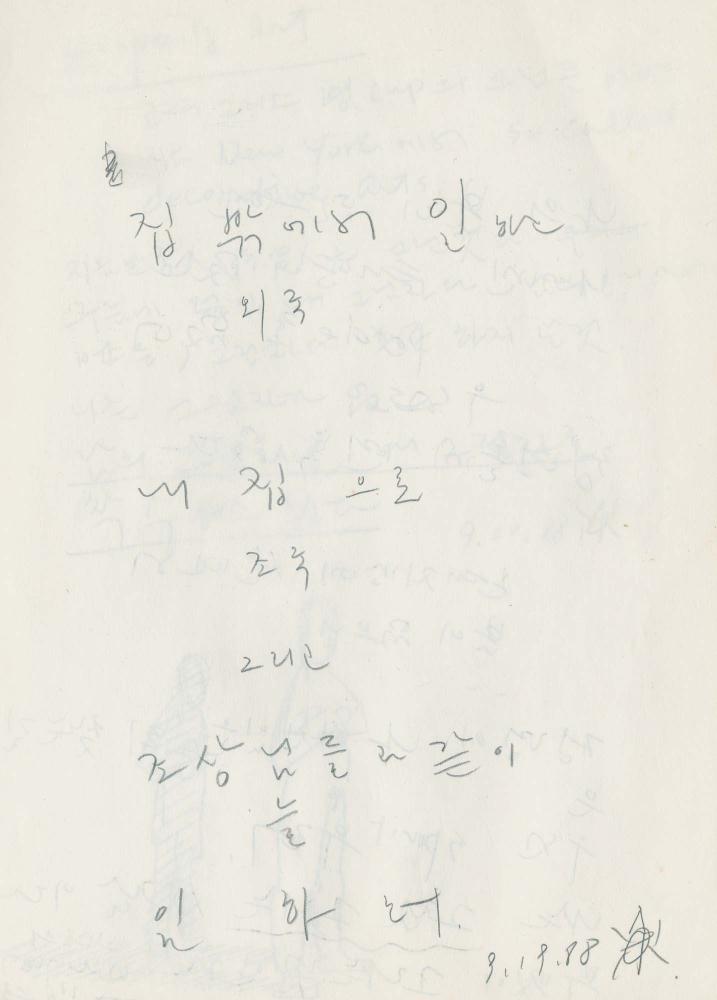 집 밖에서 일하는
외국
내 집으로
조국
그리고
조상님들과 같이
늘
일하러.
9.19.88